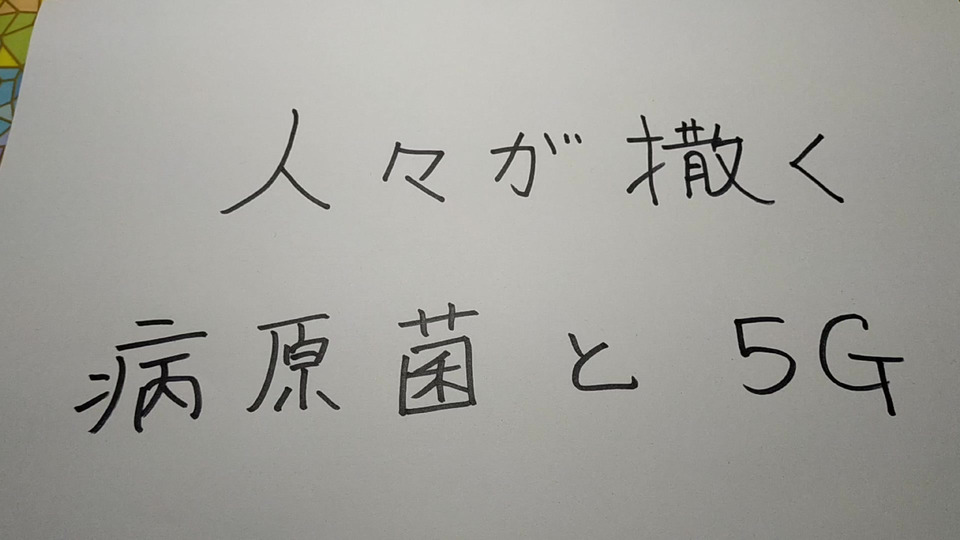 人々が撒く
病原菌と5G